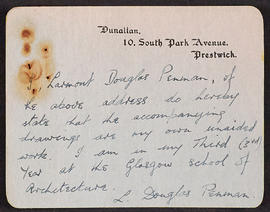 Dunallan,
10, South Park Avenue,
Prestwick.
I, Larmont Douglas Penman, of
the above address do hereby
state that the accompanying
drawings are my own unaided
work. I am in my Third (3rd)
Year at the Glasgow School of
Architecture.
L. Douglas Penman.